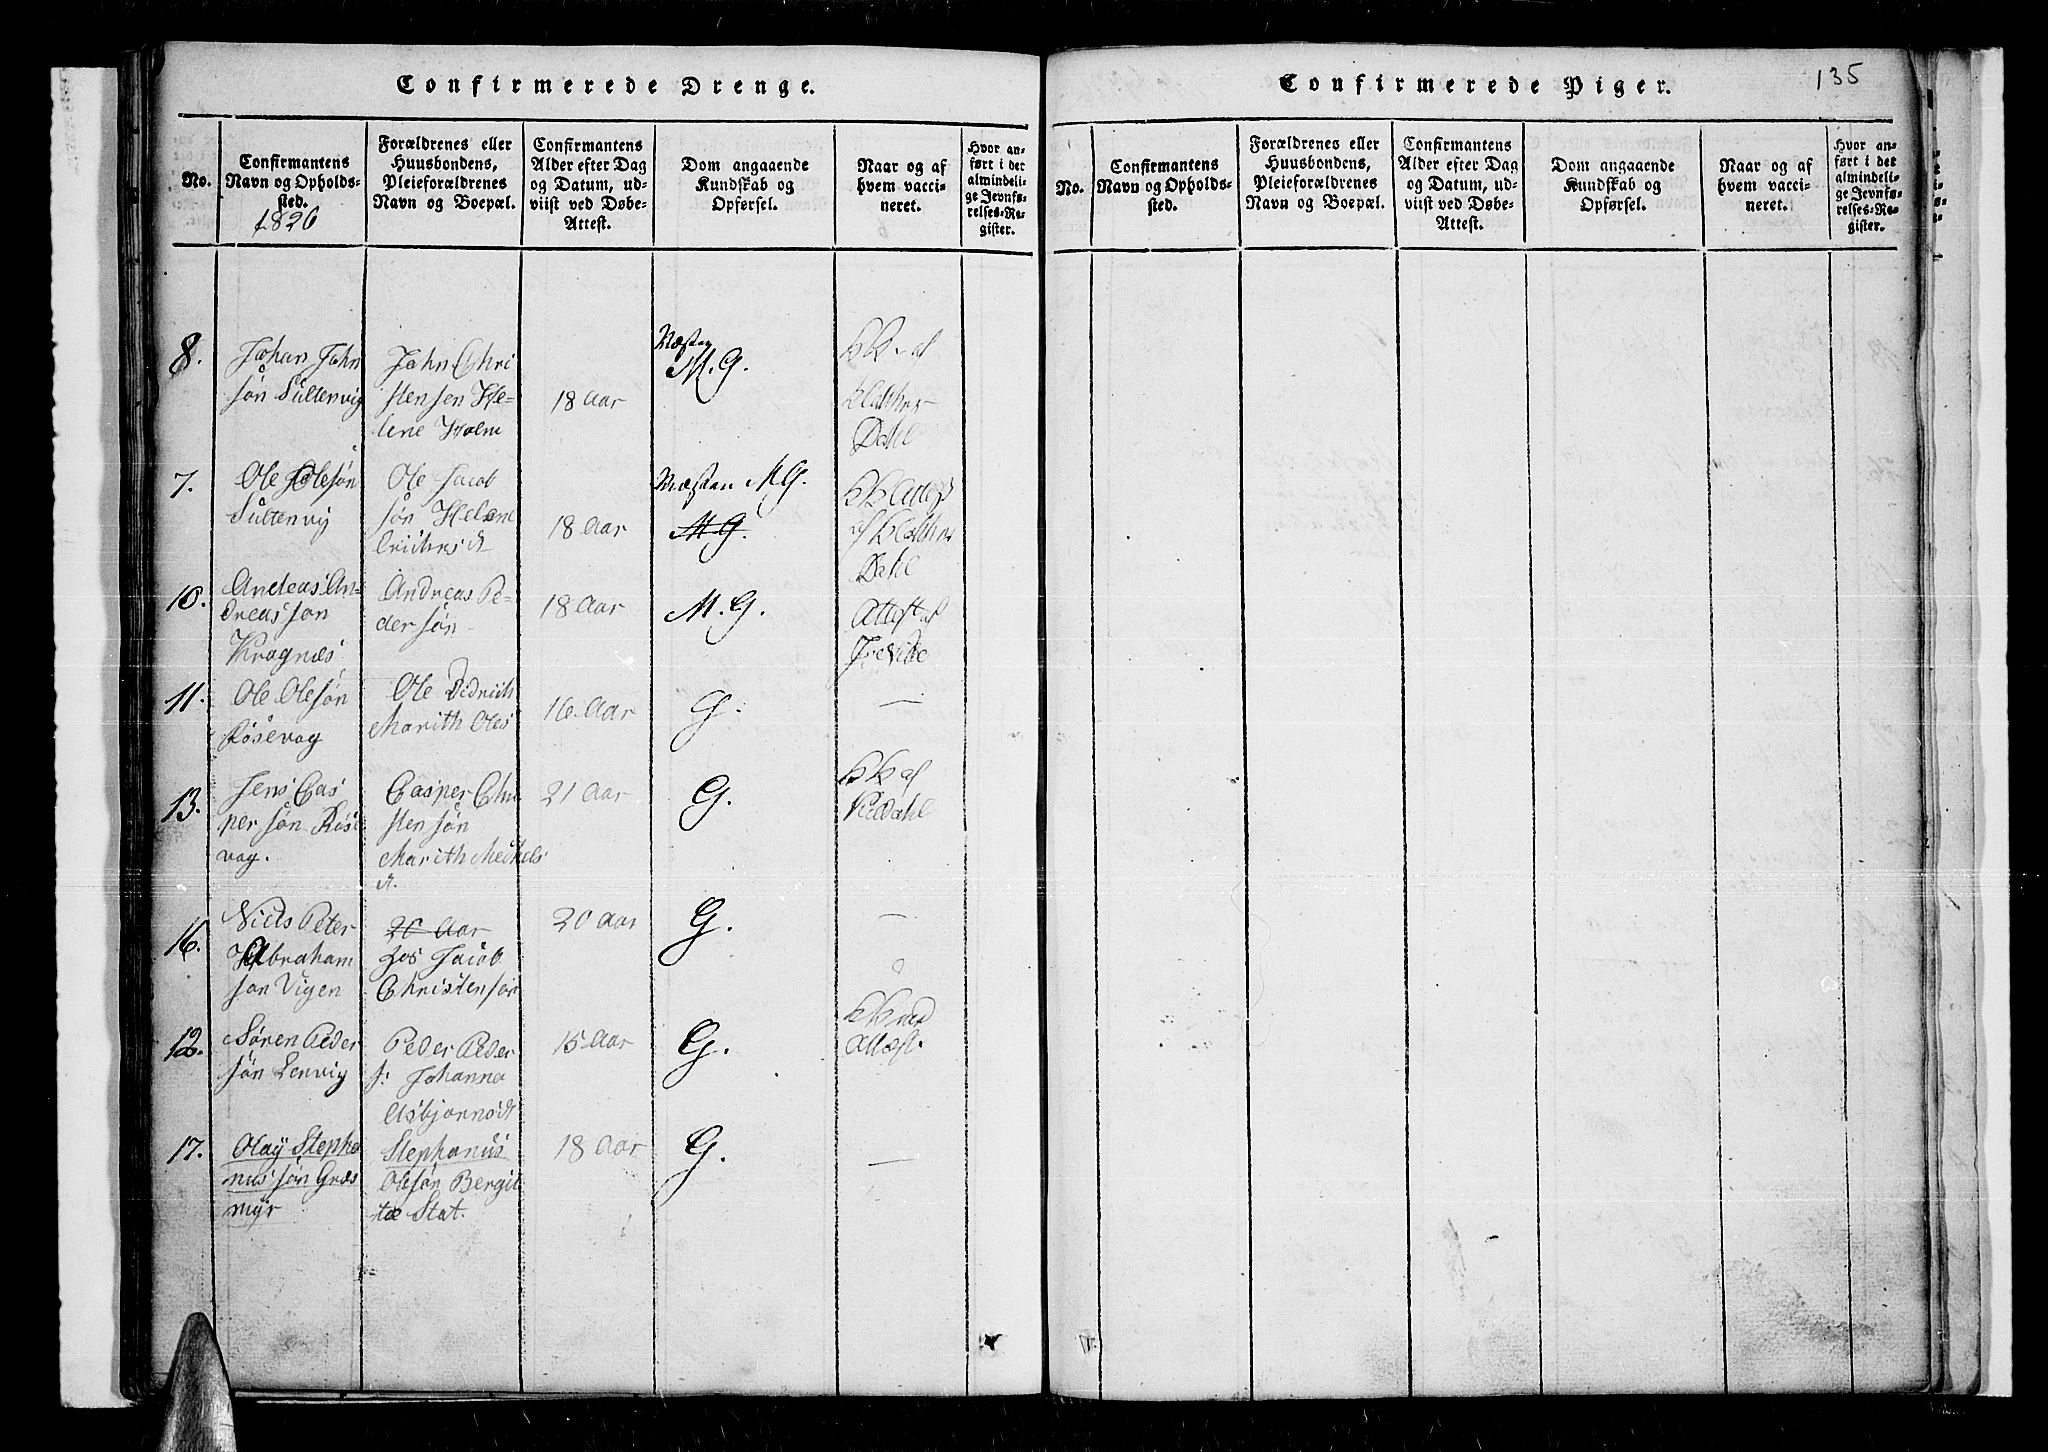 Confirmerede Drenge.
No.
Confirmantens
Navn og Opholds-
sted.
1826
Forældrenes eller
Huusbondens,
Pleieforældrenes
Navn og Boepæl.
Confirmantens
Alder efter Dag
og Datum, ud-
viist ved Døbe-
Attest.
Dom angaaende
Kundskab og
Opførsel.
Naar og af
hvem vacci-
neret.
Hvor an-
ført i det
almindeli-
ge Jevnfø-
relses-Re-
gister.
8.
Johan John
søn Sultenvig
John Chri
stensen He-
lene Holm
18 Aar
Næsten
M. G.
af
Klokker
Dahl
7.
Ole Olesøn
Sultenvig
Ole Jacob
søn Helene
18 Aar
Næsten MG.
M G.
Attest
af Klokker
Dahl
10.
Andeas An-
dreassøn
Kragnæs
Andreas Pe-
dersøn
18 Aar
M. G.
Attest af
11.
Ole Olesøn
Rosevog
Ole Didrich
Marith Oles
16 Aar
G.
—
13.
Jens Cas
persøn Rose
vog.
Casper Chri
stensøn
Marith Michels
d.
21 Aar
G.
af
Kildahl
16.
Niels Peter
Abraham
søn Vigen
20 Aar
hos Jacob
Christensøn
20 Aar
G.
—
12.
Søren Peder
søn Lenvig
Peder Peder
s: Johanna
Asbjørnsd
15 Aar
G.
Attest.
17.
Olay Stepha
nussøn Græs
myr
Stephanus
Olesøn Bergit
tæ Stat.
18 Aar
G.
—
Confirmerede Piger.
135
No.
Confirmantens
Navn og Opholds-
sted.
Forældrenes eller
Huusbondens,
Pleieforældrenes
Navn og Boepæl.
Confirmantens
Alder efter Dag
og Datum, ud-
viist ved Døbe-
Attest.
Dom angaaende
Kundskab og
Opførsel.
Naar og af
hvem vacci-
neret.
Hvor an-
ført i det
almindeli-
ge Jevnfø-
relses-Re-
gister.